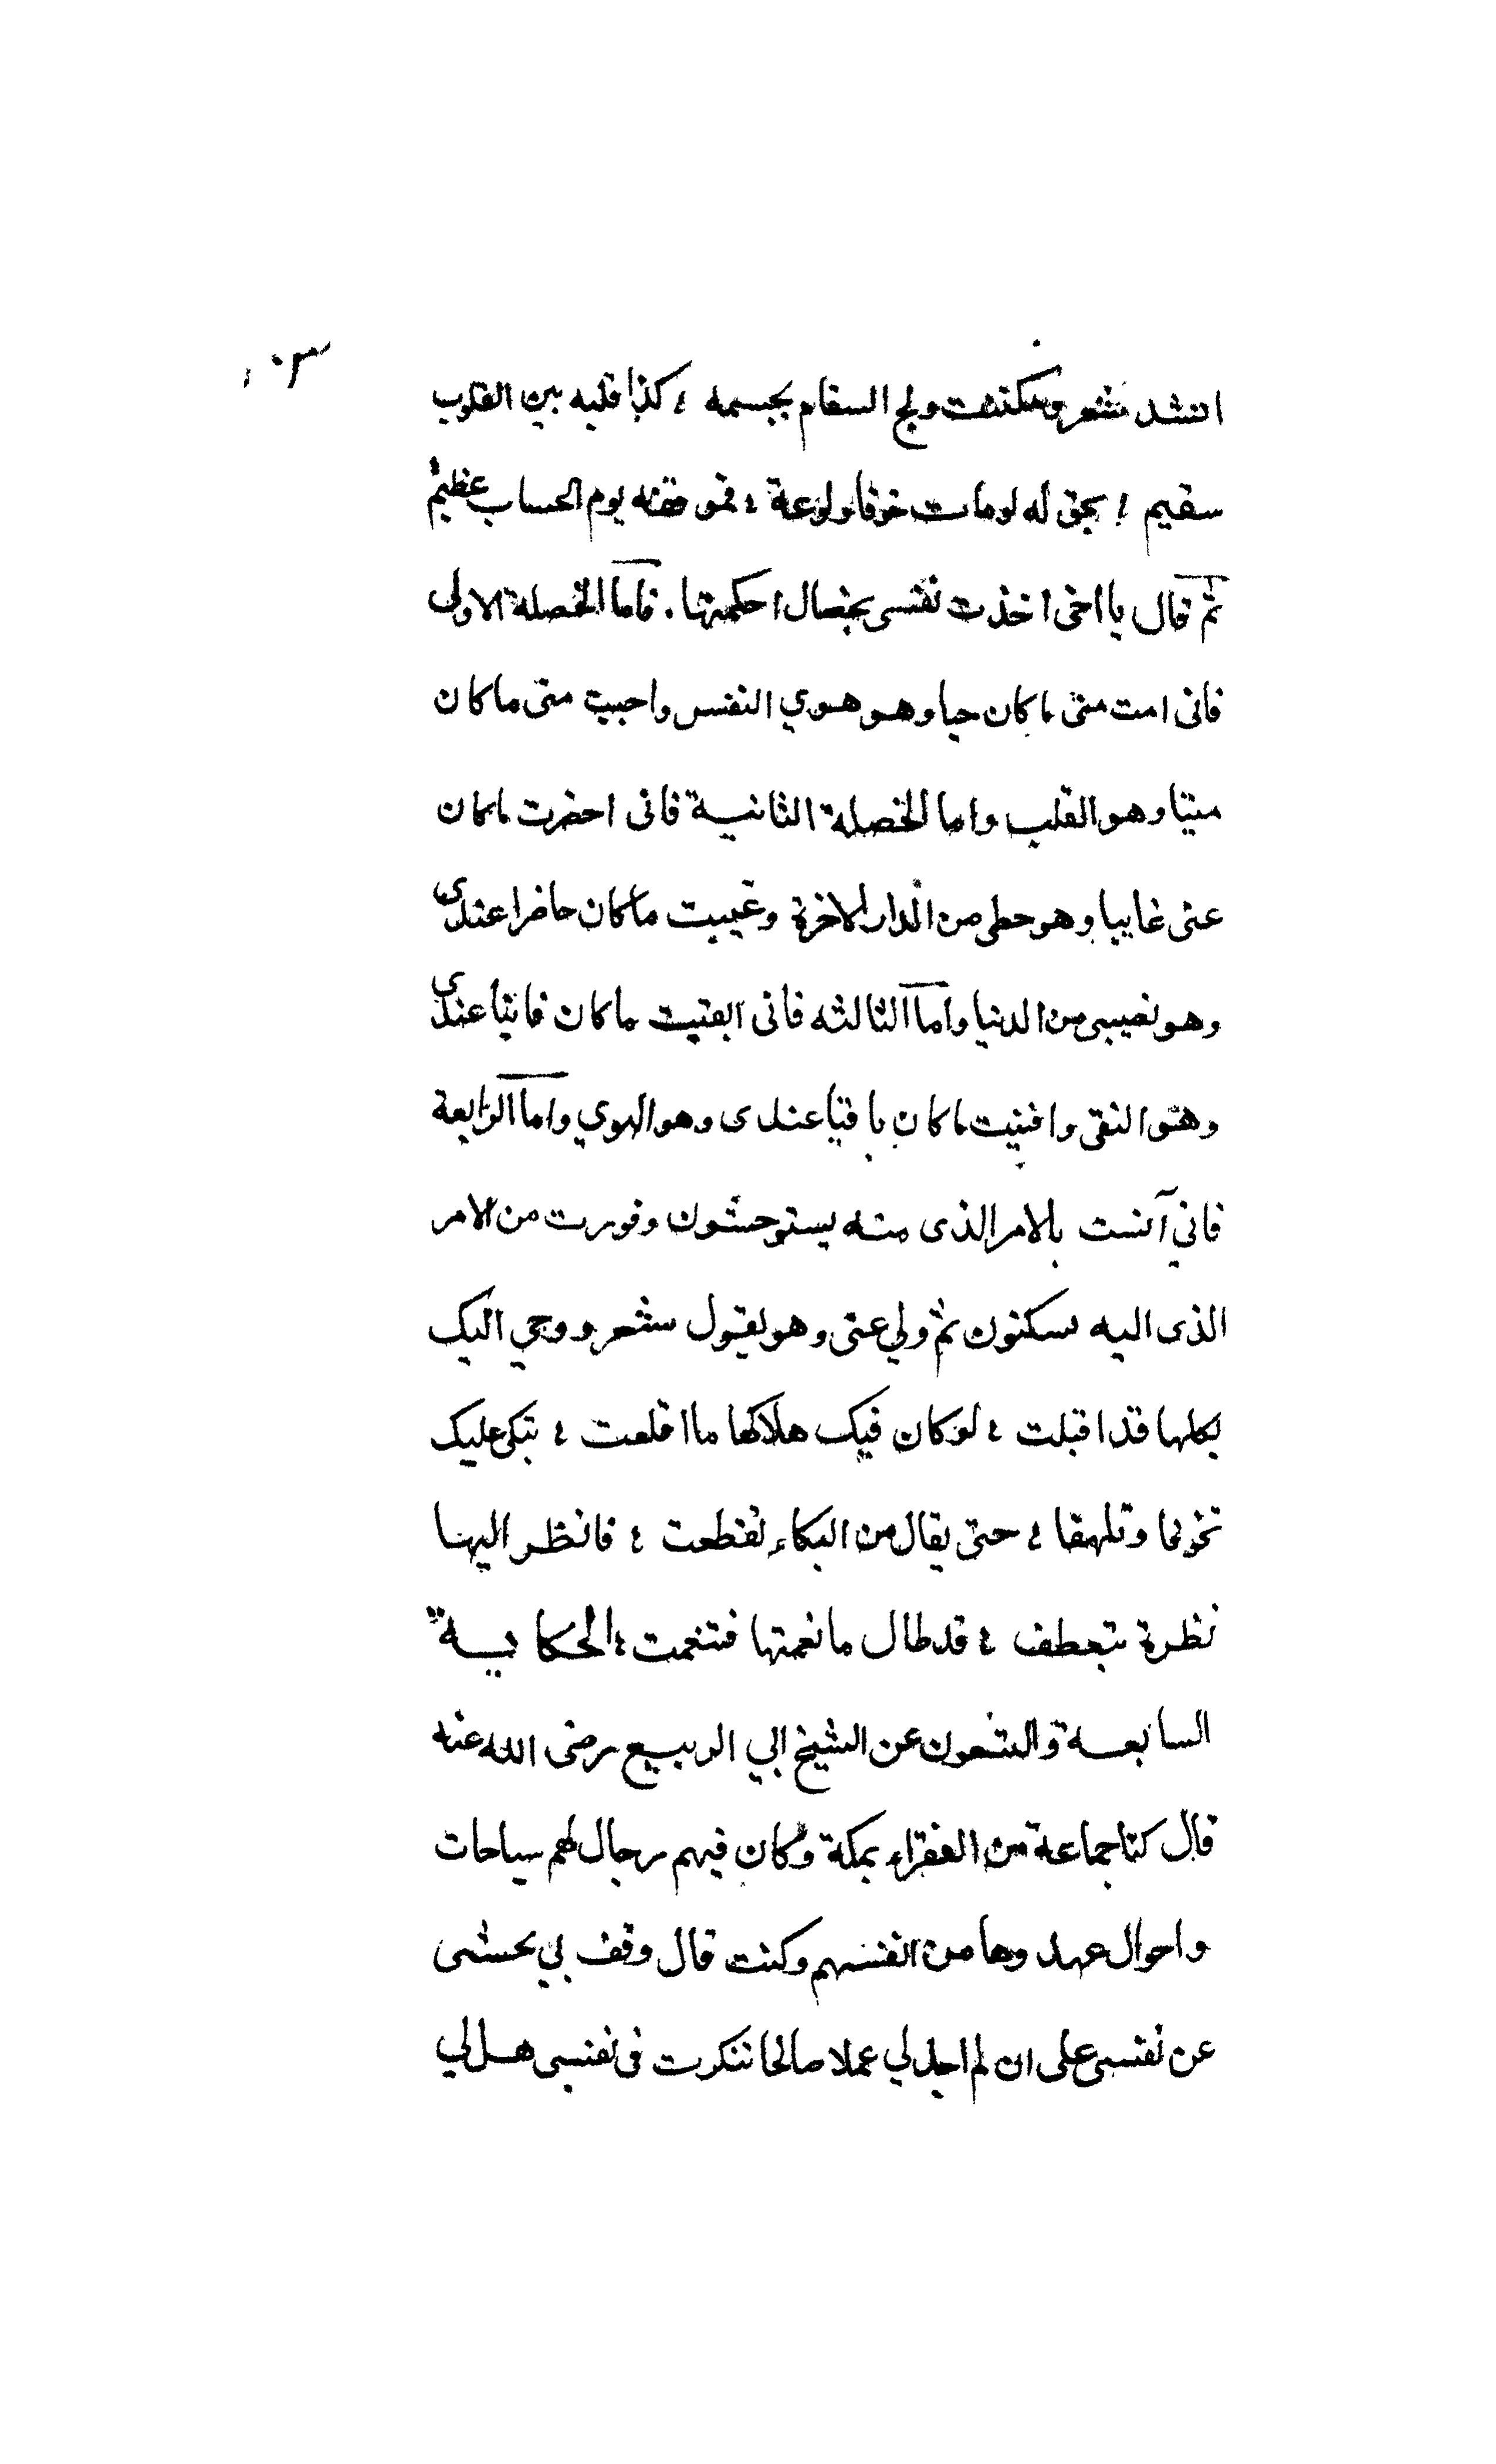 ١٠٣
انشد شعر ومكتئب ولج السقام بجسمه ؛ كذا قلبه بين القلوب
سقيم ؛ يحق له لو مات خوفا ولوعة ؛ فموقفه يوم الحساب عظيم
ثم قال يا اخى اخذت نفسى بخصال احكمتها . فاما الخصلة الاولى
فانى امت منى ما كان حيا وهو هوي النفس واحييت منى ما كان
ميتا وهو القلب واما الخصلة الثانية فانى احضرت ما كان
عنى غايبا وهو حظى من الدار الاخرة وغيبت ما كان حاضرا عندى
وهو نصيبى من الدنيا واما الثالثه فانى ابقيت ما كان فانيا عندى
وهو التقى وافنيت ما كان باقيا عندى وهو الهوي واما الرابعة
فاني آنست بالامر الذى منه يستوحشون وفررت من الامر
الذى اليه يسكنون ثم ولي عنى وهو يقول شعر ووجي اليك
بكلها قد اقبلت ؛ لو كان فيك هلاكها ما اقلعت ؛ تبكى عليك
تخوفا وتلهفا ؛ حتى يقال من البكاء تقطعت ؛ فانظر اليها
نظرة بتعطف ؛ قد طال ما نعمتها فتنعمت ؛ الحكاية
السابعة والتسعون عن الشيخ ابي الربيع رضى الله عنه
قال كنا جماعة من الفقراء بمكة وكان فيهم رجال لهم سياحات
واحوال عهدوها من انفسهم وكنت قال وقف بي
عن نفسى على ان لم اجد لي عملا صالحا تفكرت فى نفسى هل لي